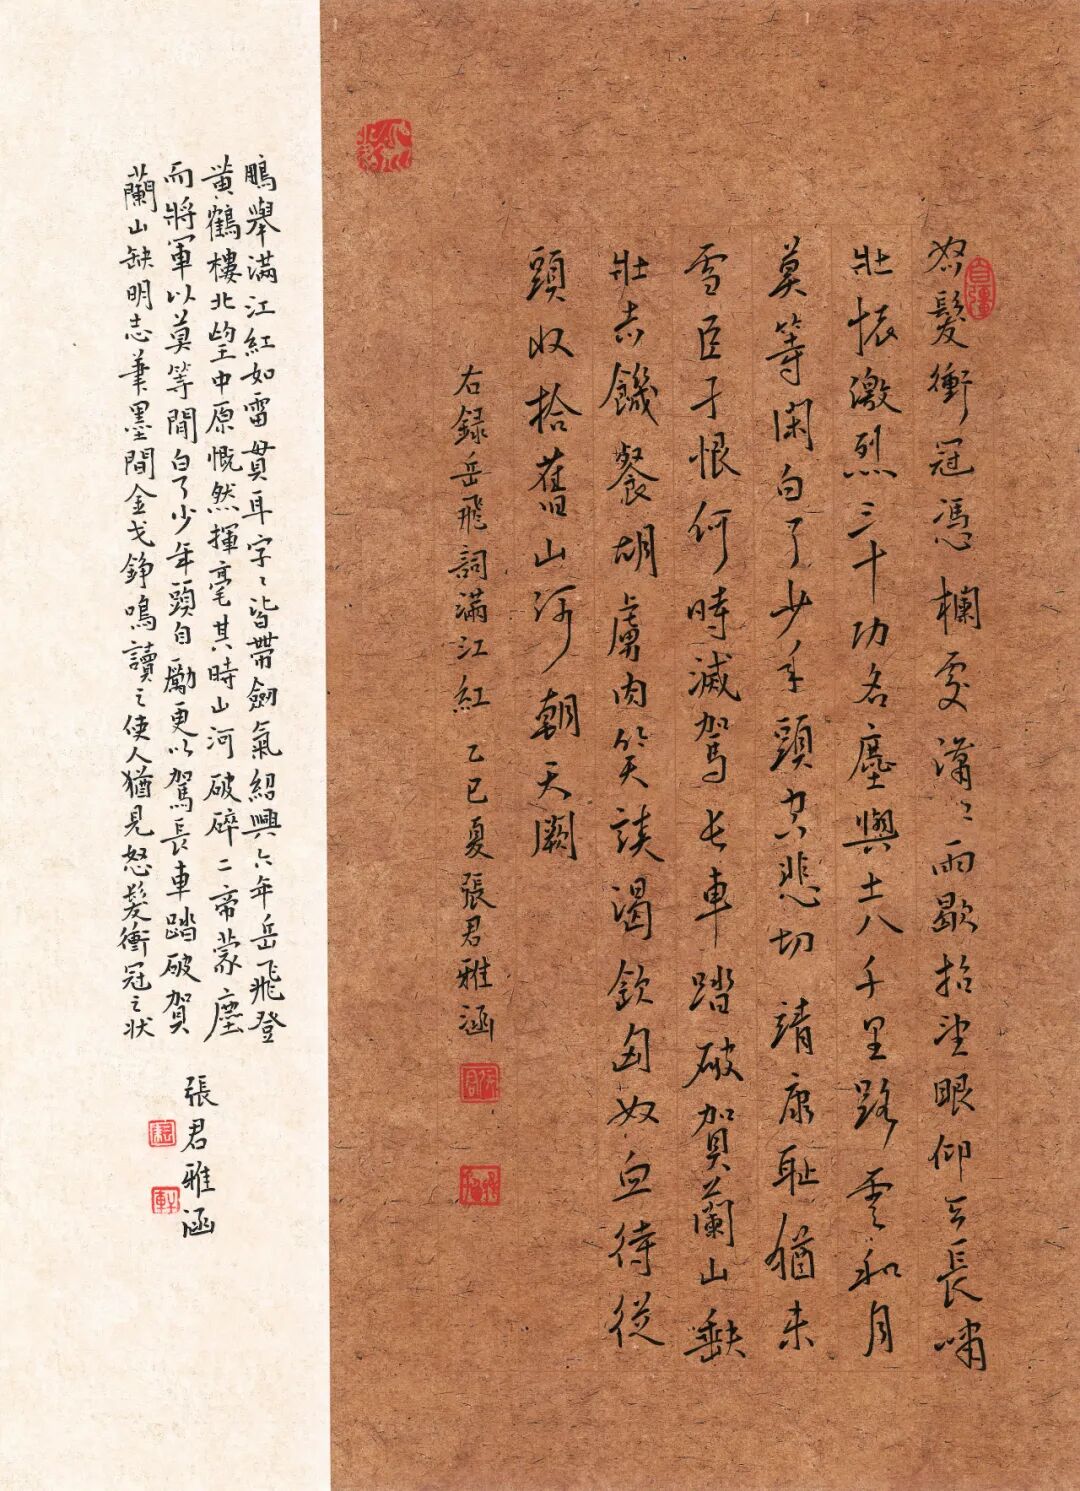 怒髮衝冠憑欄處瀟〻雨歇抬望眼仰天長嘯
壯懷激烈三十功名塵與土八千里路雲和月
莫等閑白了少年頭空悲切靖康恥猶未
雪臣子恨何時滅駕長車踏破賀蘭山缺
壯志饑餐胡虜肉笑談渴飲匈奴血待從
頭收拾舊山河朝天闕
右録岳飛詞滿江紅 乙巳夏張君雅涵
鵬舉滿江紅如雷貫耳字〻皆帶劍氣紹興六年岳飛登
黃鶴樓北望中原慨然揮毫其時山河破碎二帝蒙塵
而將軍以莫等閒白了少年頭自勵更以駕長車踏破賀
蘭山缺明志筆墨間金戈錚鳴讀之使人猶見怒髮衝冠之狀
張君雅涵